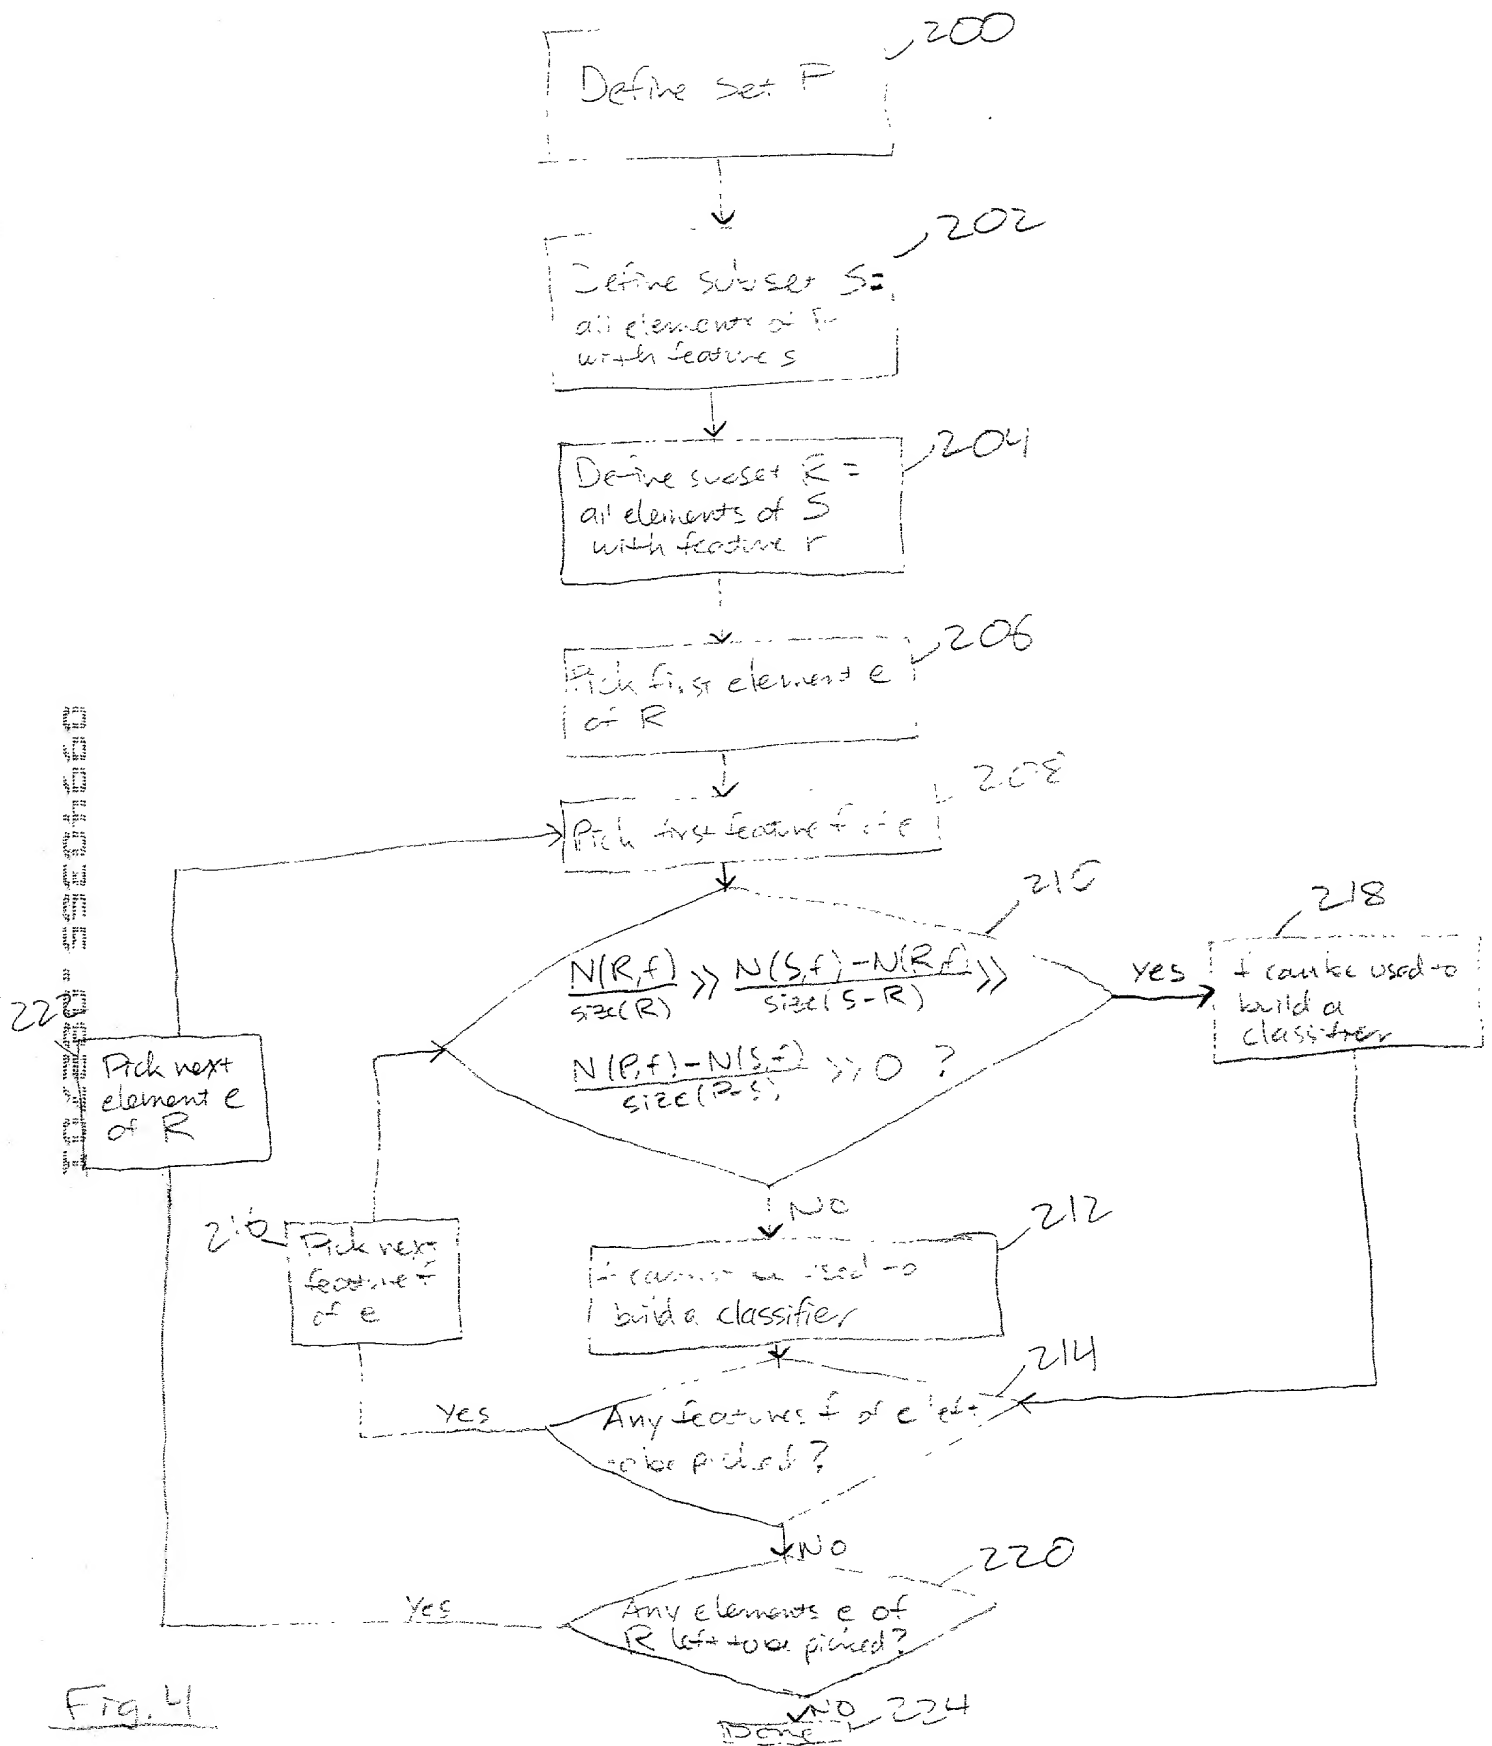 200
Define set P
202
Define subset S =
all elements of P
with feature s
204
Define subset R =
all elements of S
with feature r
206
Pick first element e
of R
208
Pick first feature f of e
210
N(R,f) / size(R) >> N(S,f) - N(R,f) / size(S-R) >>
N(P,f) - N(S,f) / size(P-S) >> 0 ?
Yes
218
f can be used to
build a
classifier
222
Pick next
element e
of R
NO
212
f cannot be used to
build a classifier
216
Pick next
feature f
of e
214
Any features f of e left
to be picked?
Yes
NO
220
Any elements e of
R left to be picked?
Yes
NO
224
Done
Fig. 4